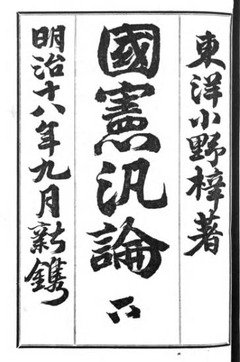 東洋小野梓著
國憲汎論 下
明治十八年九月新鐫